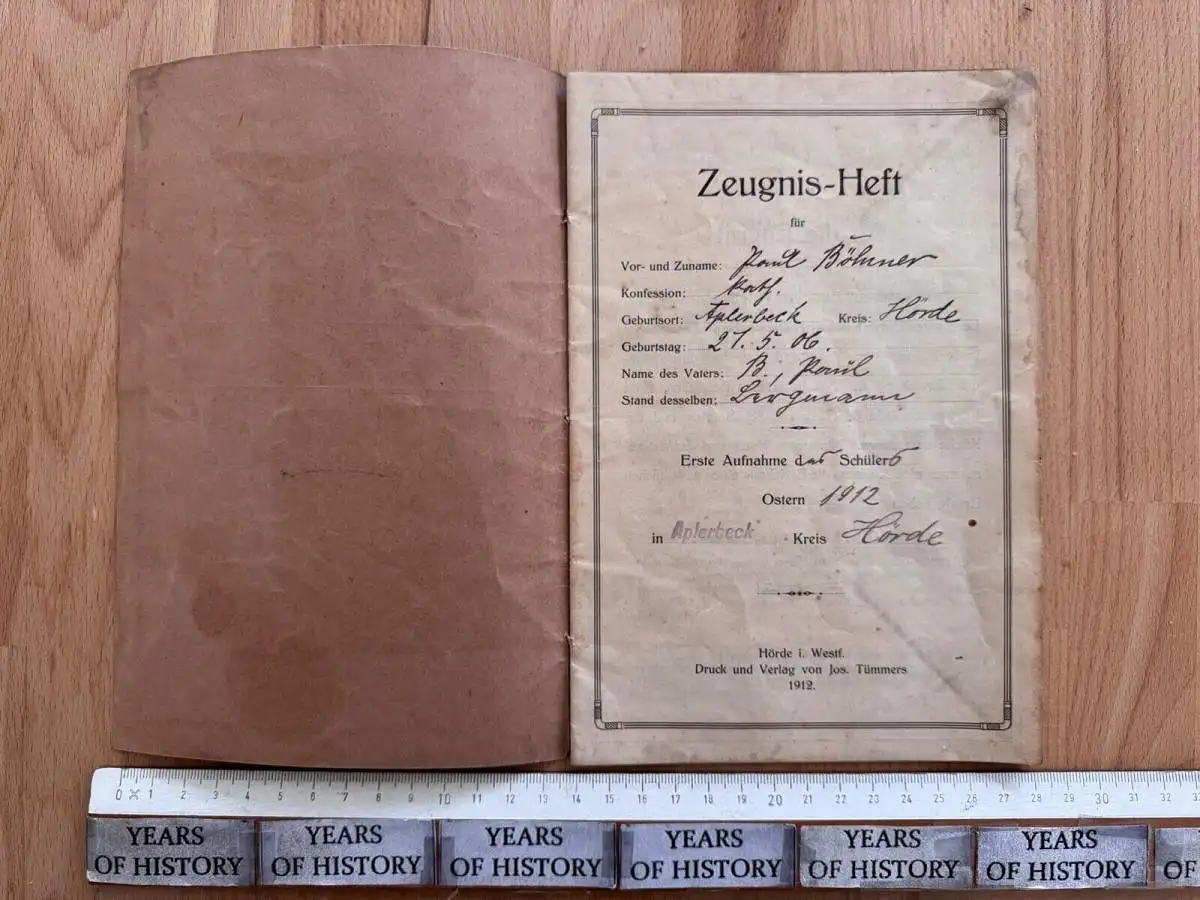 Zeugnis-Heft
für
Vor- und Zuname: Paul Böhmer
Konfession: kath.
Geburtsort: Aplerbeck Kreis: Hörde
Geburtstag: 27. 5. 06.
Name des Vaters: B., Paul
Stand desselben: Bergmann
Erste Aufnahme des Schülers
Ostern 1912
in Aplerbeck Kreis Hörde
Hörde i. Westf.
Druck und Verlag von Jos. Tümmers
1912.
0 1 2 3 4 5 6 7 8 9 10 11 12 13 14 15 16 17 18 19 20 21 22 23 24 25 26 27 28 29 30 31 32
YEARS YEARS YEARS YEARS YEARS YEARS
OF HISTORY OF HISTORY OF HISTORY OF HISTORY OF HISTORY OF HISTORY OF